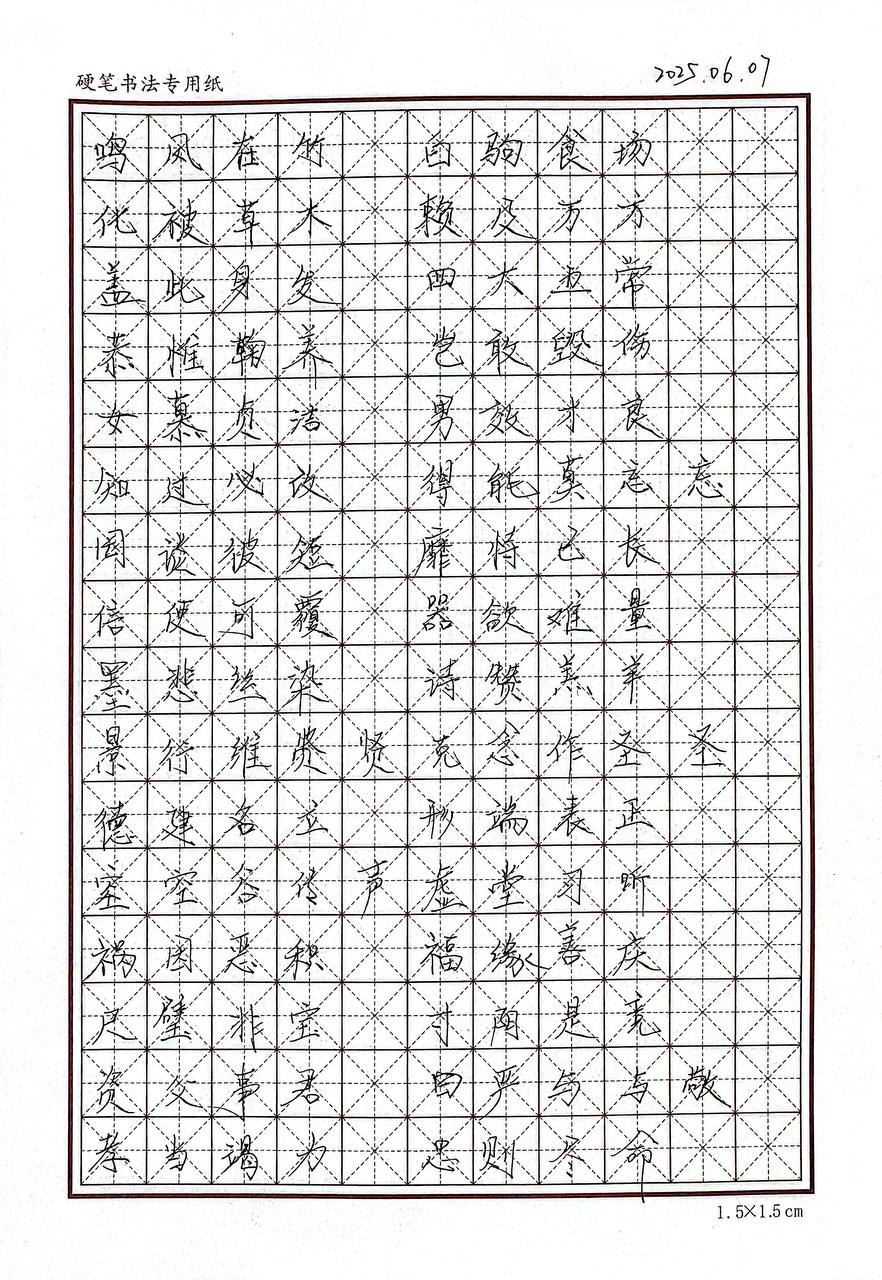 硬笔书法专用纸 2025.06.07
鸣凤在竹 白驹食场
化被草木 赖及万方
盖此身发 四大五常
恭惟鞠养 岂敢毁伤
女慕贞洁 男效才良
知过必改 得能莫忘忘
罔谈彼短 靡恃己长
信使可覆 器欲难量
墨悲丝染 诗赞羔羊
景行维贤贤 克念作圣圣
德建名立 形端表正
空空谷传声 虚堂习听
祸因恶积 福缘善庆
尺璧非宝 寸阴是竞
资父事君 曰严与与敬
孝当竭力 忠则尽命
1.5×1.5cm